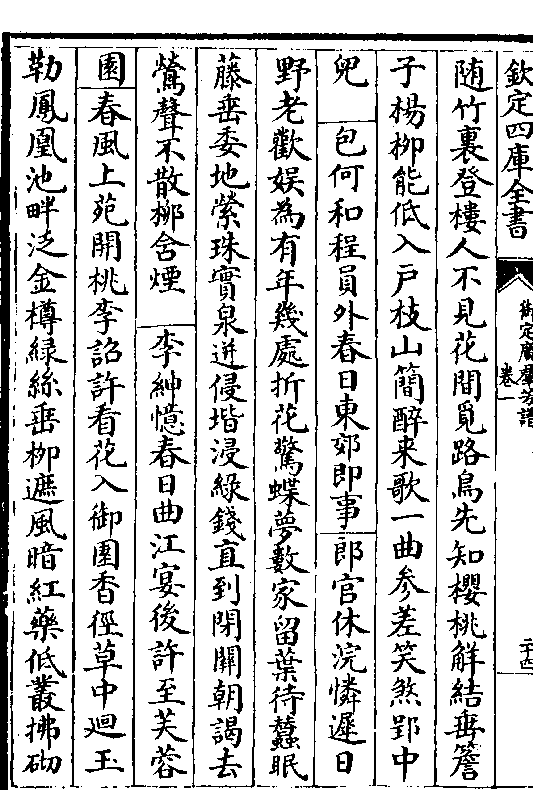 欽定四庫全書
御定廣羣芳譜
卷一
二十四
随竹裏登樓人不見花間覓路鳥先知櫻桃解結垂簷
子楊栁能低入戸枝山簡醉来歌一曲参差笑煞郢中
兒　包何和程員外春日東郊即事　郎官休浣憐遲日
野老歡娱為有年幾處折花驚蝶夢數家留葉待蠶眠
藤垂委地縈珠實泉迸侵堦浸緑錢直到閉關朝謁去
鶯聲不散栁含煙　李紳憶春日曲江宴後許至芙蓉
園　春風上苑開桃李詔許看花入御園香徑草中廻玉
勒鳳凰池畔泛金樽緑絲垂栁遮風暗紅藥低叢拂砌